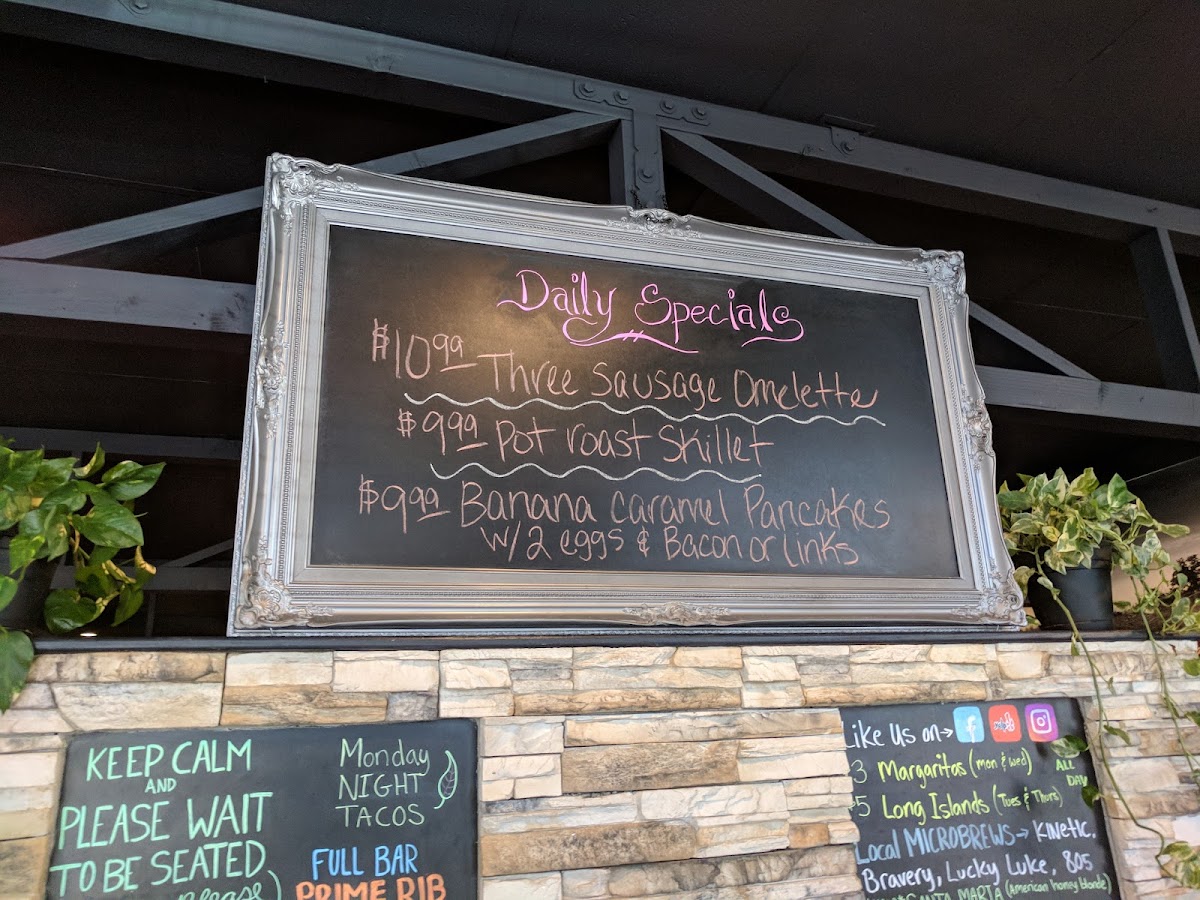 Daily Specials
$10.99 Three Sausage Omelette
$9.99 Pot roast Skillet
$9.99 Banana caramel Pancakes
w/2 eggs & Bacon or Links
KEEP CALM
AND
PLEASE WAIT
TO BE SEATED
please
Monday
NIGHT
TACOS
FULL BAR
PRIME RIB
Like Us on→
3 Margaritas (mon & wed) ALL DAY
5 Long Islands (Tues & Thurs)
Local MICROBREWS→ KINETIC,
Bravery, Lucky Luke, 805
SANTA MARIA (American honey blonde)